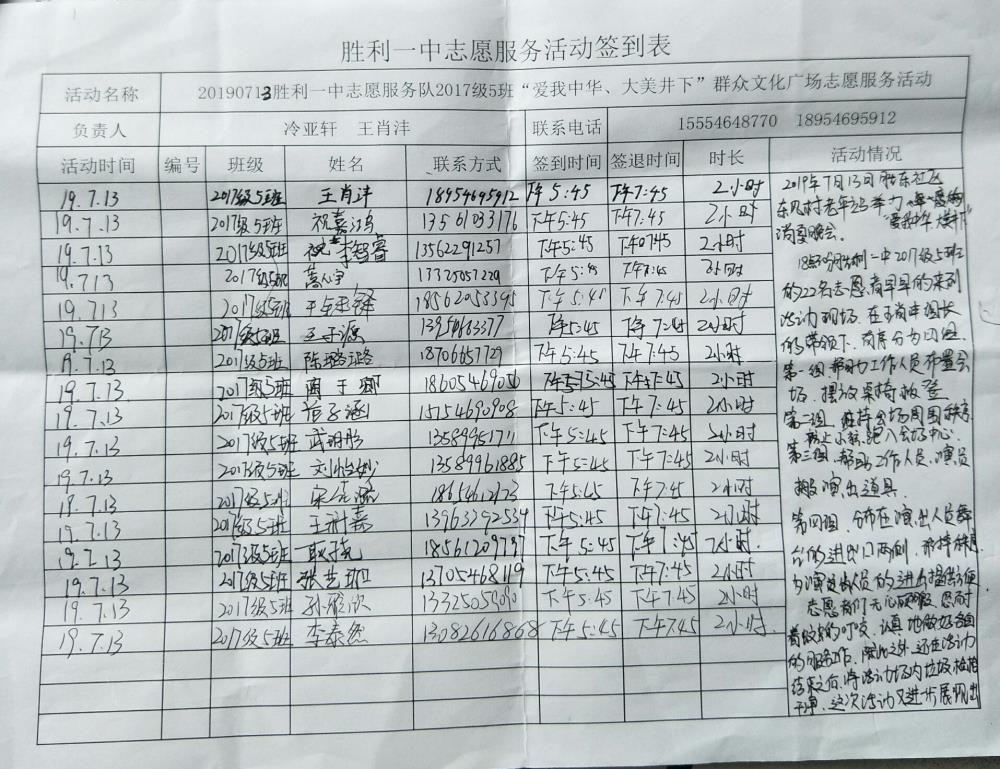 胜利一中志愿服务活动签到表
活动名称 20190713胜利一中志愿服务队2017级5班“爱我中华、大美井下”群众文化广场志愿服务活动
负责人 冷亚轩 王肖沣 联系电话 15554648770 18954695912
活动时间 编号 班级 姓名 联系方式 签到时间 签退时间 时长 活动情况
19.7.13 2017级5班 王肖沣 18954695912 下午5:45 下午7:45 2小时
19.7.13 2017级5班 祝嘉鸿 13561033176 下午5:45 下午7:45 2小时
19.7.13 2017级5班 李智睿 13562291257 下午5:45 下午7:45 2小时
19.713 2017级5班 13325057229 下午5:45 下午7:45 2小时
19.713 2017级5班 18562053395 下午5:45 下午7:45 2小时
19.7.13 2017级5班 王子源 下午5:45 下午7:45 2小时
19.7.13 2017级5班 陈璐璐 18706657729 下午5:45 下午7:45 2小时
19.7.13 2017级5班 周于卿 18605469056 下午5:45 下午7:45 2小时
19.7.13 2017级5班 苗子涵 15754690908 下午5:45 下午7:45 2小时
19.7.13 2017级5班 武明彤 13589951711 下午5:45 下午7:45 2小时
19.7.13 2017级5班 13589961885 下午5:45 下午7:45 2小时
19.7.13 2017级5班 下午5:45 下午7:45 2小时
19.7.13 2017级5班 王树嘉 13963292534 下午5:45 下午7:45 2小时
19.7.13 2017级5班 耿子苑 18561209797 下午5:45 下午7:45 2小时
19.7.13 2017级5班 13705468119 下午5:45 下午7:45 2小时
19.7.13 2017级5班 孙雅欣 13325059090 下午5:45 下午7:45 2小时
19.7.13 2017级5班 李泰然 13082616868 下午5:45 下午7:45 2小时
2019年7月13日 胜东社区
消夏晚会。
胜利一中2017级5班
的22名志愿者早早的来到
活动现场。在王肖沣团长
的带领下，有序分为四组。
第一组，帮助工作人员布置会
场，摆放桌椅板凳
第二组，维持会场周围秩序，
防止小孩跑入会场中心。
第三组，帮助工作人员、演员
搬演出道具。
第四组，分布在演出人员舞
台的进出口两侧，维持秩序
为演员人员的进出提供方便
志愿者们
着蚊虫的叮咬，认真地做好各自
的服务工作，除此之外，还在活动
结束之后，将活动场内垃圾捡拾
干净。这次活动又进一步展现出